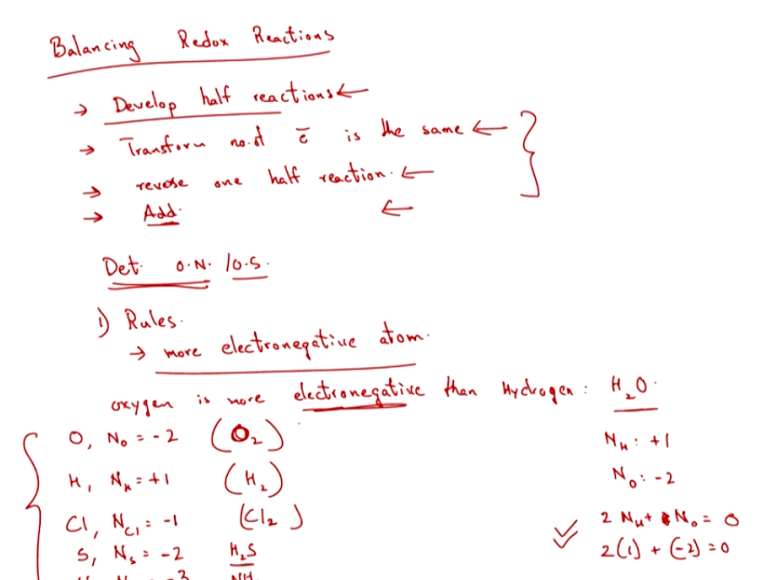 Balancing Redox Reactions
→ Develop half reactions ←
→ Transform no. of e̅ is the same ←
→ revese one half reaction. ←
→ Add. ←
Det. O.N. / O.S.
1) Rules.
→ more electronegative atom.
oxygen is more electronegative than Hydrogen : H₂O.
O, N₀ = -2 (O₂)
H, Nₕ = +1 (H₂)
Cl, N_Cl = -1 (Cl₂)
S, Nₛ = -2 H₂S
-3 NH
Nₕ : +1
N₀ : -2
2 Nₕ + N₀ = 0
2(1) + (-2) = 0